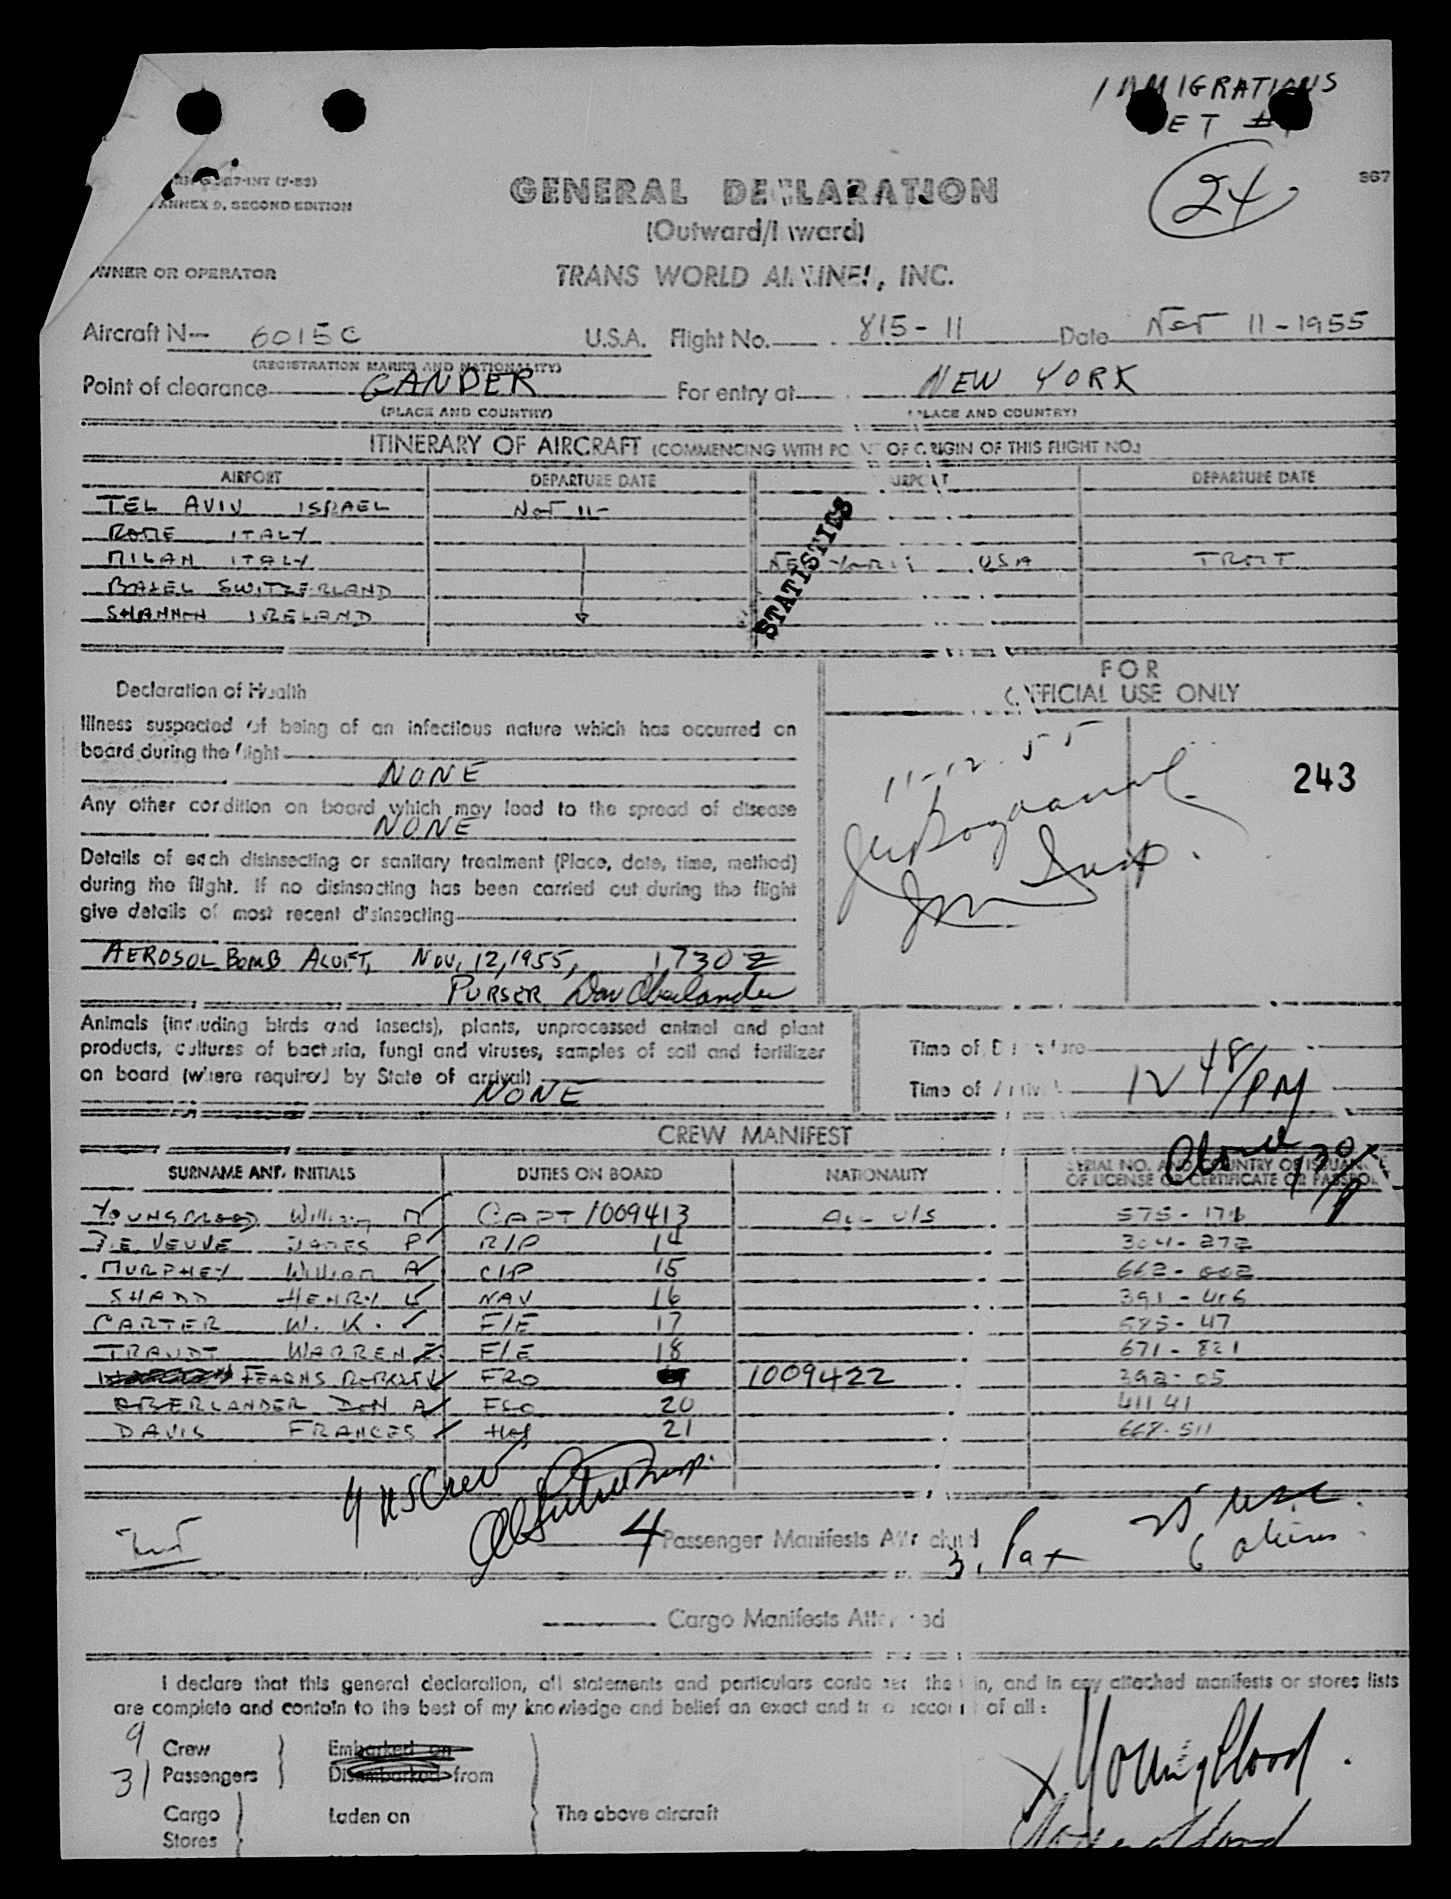 IMMIGRATIONS
24
367
ANNEX 9, SECOND EDITION
GENERAL DECLARATION
(Outward/Inward)
OWNER OR OPERATOR
TRANS WORLD AIRLINES, INC.
Aircraft N- 6015C U.S.A. Flight No. 815-11 Date Nov 11-1955
(REGISTRATION MARKS AND NATIONALITY)
Point of clearance GANDER For entry at NEW YORK
(PLACE AND COUNTRY) (PLACE AND COUNTRY)
ITINERARY OF AIRCRAFT (COMMENCING WITH POINT OF ORIGIN OF THIS FLIGHT NO.)
AIRPORT DEPARTURE DATE AIRPORT DEPARTURE DATE
TEL AVIV ISRAEL Nov 11-
ROME ITALY
MILAN ITALY NEW YORK USA
BASEL SWITZERLAND
SHANNON IRELAND
STATISTICS
FOR
OFFICIAL USE ONLY
Declaration of Health
Illness suspected of being of an infectious nature which has occurred on
board during the flight
NONE
11-12-55
243
Any other condition on board which may lead to the spread of disease
NONE
Details of each disinsecting or sanitary treatment (Place, date, time, method)
during the flight. If no disinsecting has been carried out during the flight
give details of most recent disinsecting
AEROSOL BOMB ALOFT, NOV. 12, 1955, 1730Z
PURSER Don Oberlander
Animals (including birds and insects), plants, unprocessed animal and plant
products, cultures of bacteria, fungi and viruses, samples of soil and fertilizer
on board (where required by State of arrival)
NONE
Time of Departure
Time of Arrival 12 48/PM
CREW MANIFEST
SURNAME AND INITIALS DUTIES ON BOARD NATIONALITY SERIAL NO. AND COUNTRY OF ISSUANCE
OF LICENSE OR CERTIFICATE OR PASSPORT
YOUNGBLOOD William M CAPT 1009413 ALL U/S 575-176
DE VEUVE JAMES P R/P 14 304-272
MURPHEY William A C/P 15 662-602
SHADD HENRY NAV 16 391-406
CARTER W. K. F/E 17 585-47
TRAUDT WARREN E F/E 18 671-821
FEARNS ROBERT FRO 1009422 392-05
OBERLANDER DON A FSO 20 41141
DAVIS FRANCES Hos 21 668-511
9 US Crew
4 Passenger Manifests Attached
31 Pax
25 USC
6 aliens
Cargo Manifests Attached
I declare that this general declaration, all statements and particulars contained therein, and in any attached manifests or stores lists
are complete and contain to the best of my knowledge and belief an exact and true account of all:
9 Crew Embarked on
31 Passengers Disembarked from
Cargo Laden on The above aircraft
Stores
X Youngblood